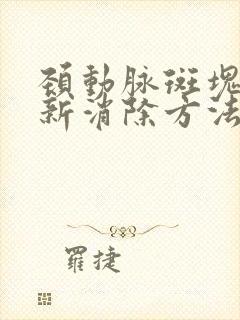 頚動脉斑塊
新消除方法
羅捷